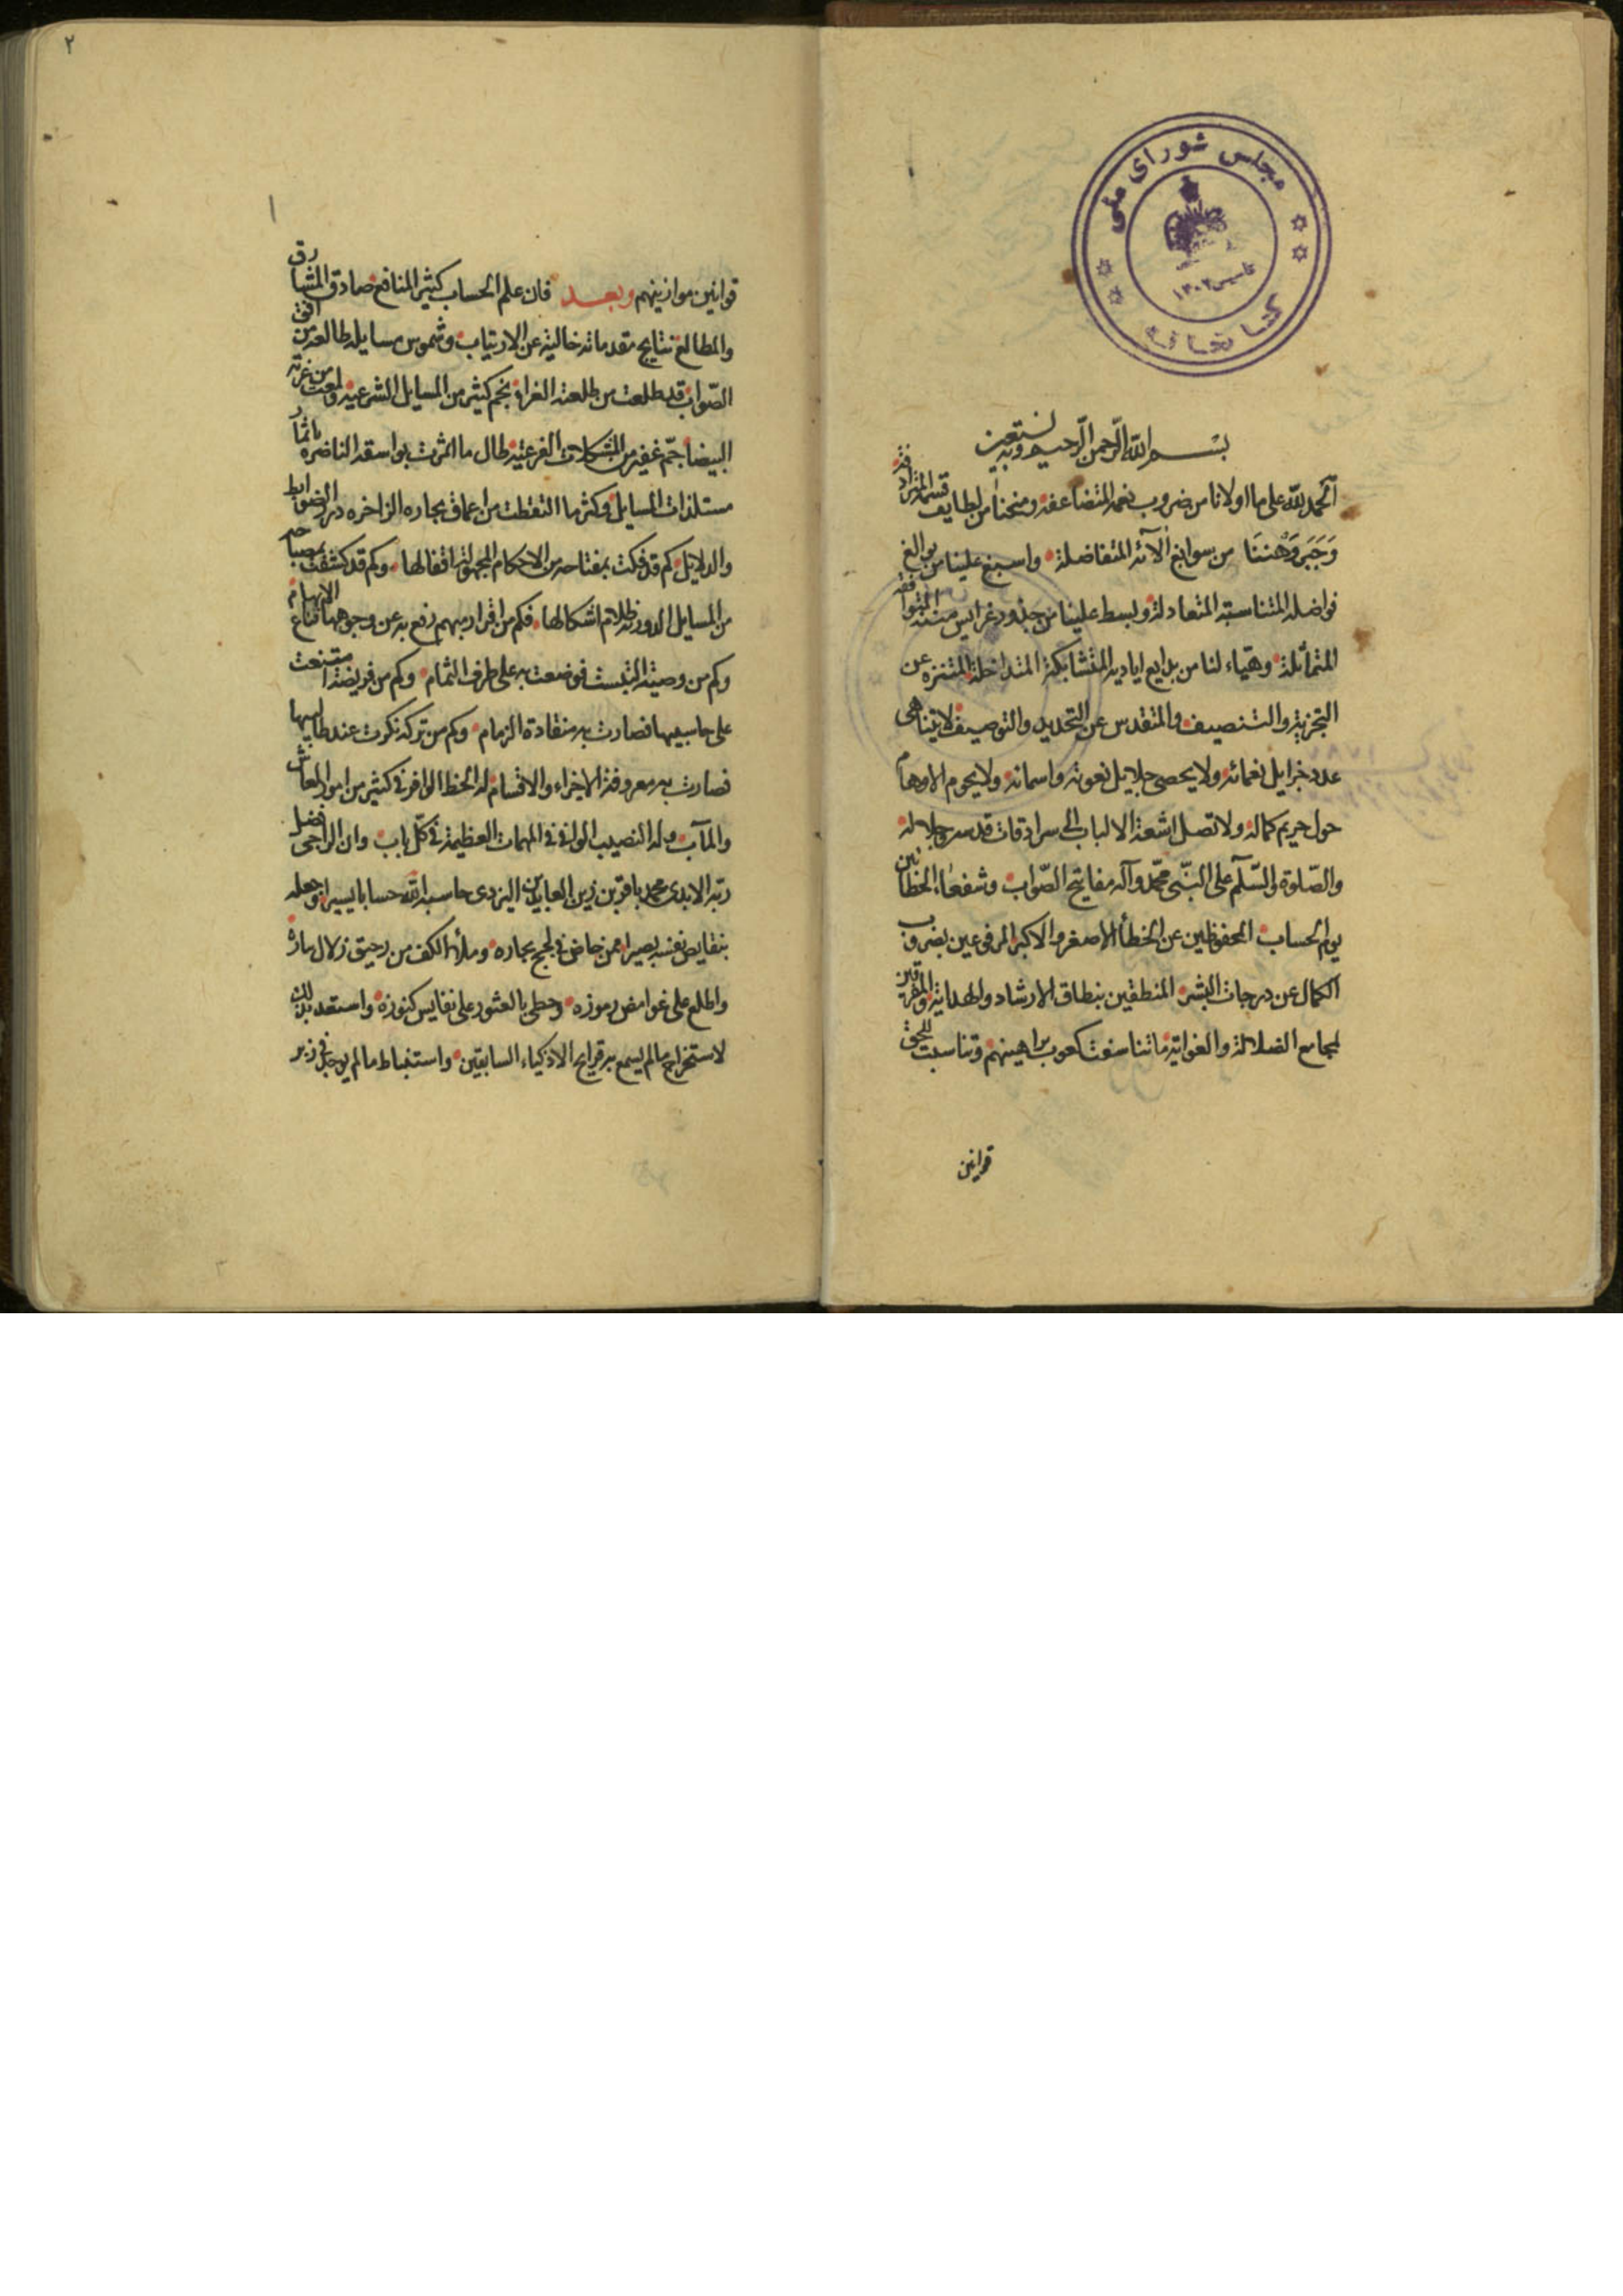 مجلس شورای ملی
تأسیس ۱۳۰۲
کتابخانه
بسم الله الرحمن الرحیم وبه نستعین
الحمد لله علی ما اولانا من ضروب نعمه المتضاعفه ومنحنا من لطایف قسمه المترادفه
من سوابغ آلآئه المتفاضلة واسبغ علینا من بوالغ
فواضله المتناسبة المتعادلة وبسط علینا من جذور غرایس مننه المتوافقه
المتماثلة وهیاء لنا من بدایع ایادیه المتشابکة المتداخلة المتنزه عن
التجزیة والتنصیف والمتقدس عن التحدید والتوصیف لایتناهی
عدد جزایل نعمائه ولا یحصی جلایل نعوته واسمائه ولا یحوم الاوهام
حول حریم کماله ولا تصل اشعة الالباب الی سرادقات قدس جلاله
والصلوة والسلم علی النبی محمد وآله مفاتیح الصواب وشفعاء الخطائین
یوم الحساب المحفوظین عن الخطأ الاصغر والاکبر المرفوعین بضروب
الکمال عن درجات البشر المنطقین بنطاق الارشاد والهدایة والمفرقین
لمجامع الضلالة والغوایة ما تناسقت کعوب براهینهم وتناسبت للحق
قوانین
۲
۱
قوانین موازینهم وبعد فان علم الحساب کثیر المنافع صادق المشارق
والمطالع نتایج مقدماته خالیة عن الارتیاب وشموس مسایله طالعة من افق
الصواب قد طلعت من طلعته الغراء نجم کثیر من المسایل الشرعیة ولمعت من غرته
البیضا جم غفیر من المشکلات الفرعیة طال ما اثمرت بواسقه الناضره باثمار
مستلذات المسایل وکثر ما التقطت من اعماق بحاره الزاخره درر الضوابط
والدلایل کم قد فکت بمفتاحه من الاحکام المجهولة اقفالها وکم قد کشفت بمصباحه
من المسایل الدوریة ظلام اشکالها فکم من اقرار مبهم رفع به عن وجوهها قناع الابهام
وکم من وصیة التبست فوضعت به علی طرف الثمام وکم من فریضة امتنعت
علی حاسبیها فصارت به منقادة الزمام وکم من ترکة نکرت عند طالبیها
فصارت به معروفة الاجزاء والاقسام له الحظ الوافر فی کثیر من امور المعاش
والمآب وله النصیب الوافی فی المهمات العظیمة فی کل باب وان الراجی فضل
ربه الابدی محمد باقر بن زین العابدین الیزدی حاسبه الله حسابا یسیرا وجعله
بنقایص نفسه بصیرا ممن خاض فی لجج بحاره وملأ الکف من رحیق زلال
واطلع علی غوامض رموزه وحظی بالعثور علی نفایس کنوزه واستعد بذلک
لاستخراج ما لم یسمع به قرایح الاذکیاء السابقین واستنباط ما لم یوجد فی زبر